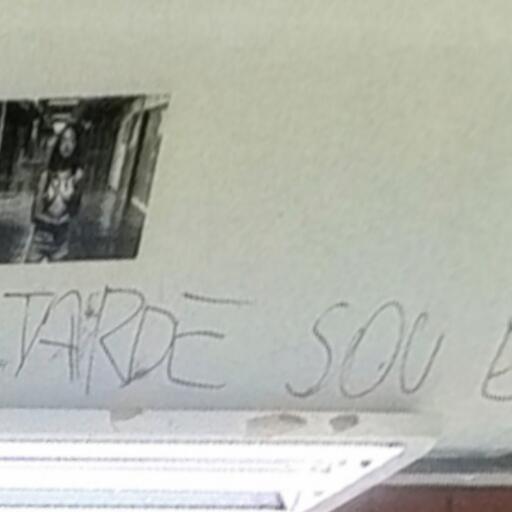 TARDE SOU E